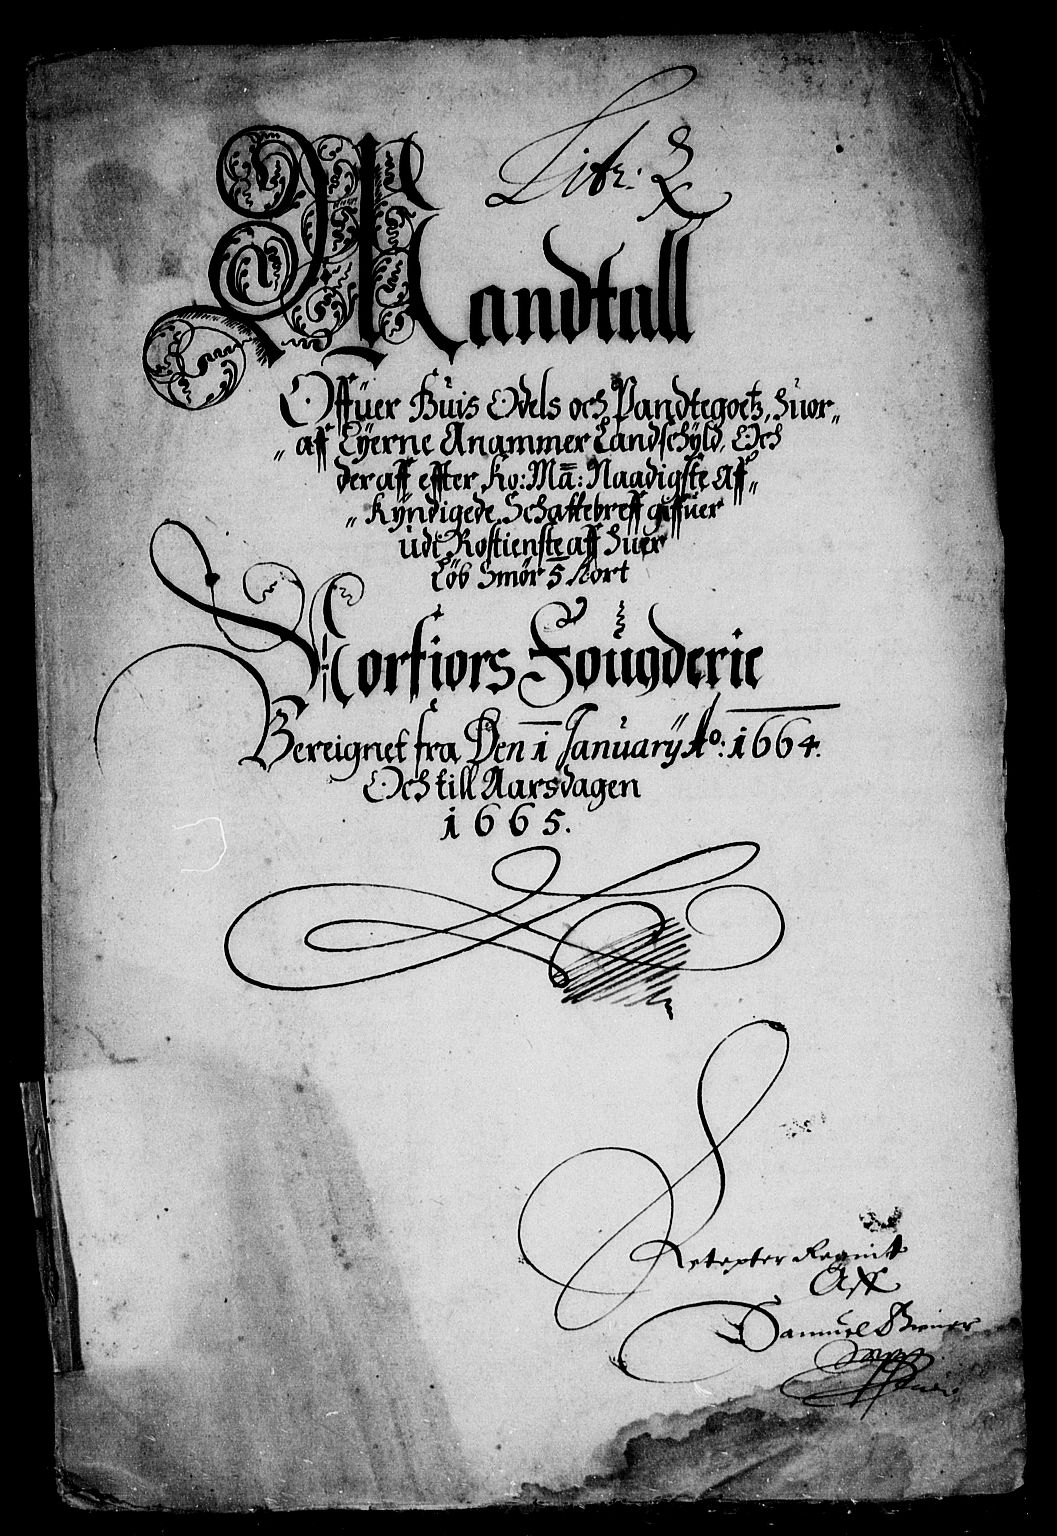 Litr: X
Mandtall
Offuer Buis Odels och Pandtegoetz, huor„
„aff Eyerne Anammer Landschyld, Och
der aff effter Ko: Ma: Naadigste Aff„
„Kyndigede Schattebreff giffuer
udi Rostienste aff huer
Löb Smör 5 Kort
Norfiors Fougderie
Bereignet fra Den 1 January Ao: 1664.
Och till Aarsdagen
1665.
Aff
Samuel